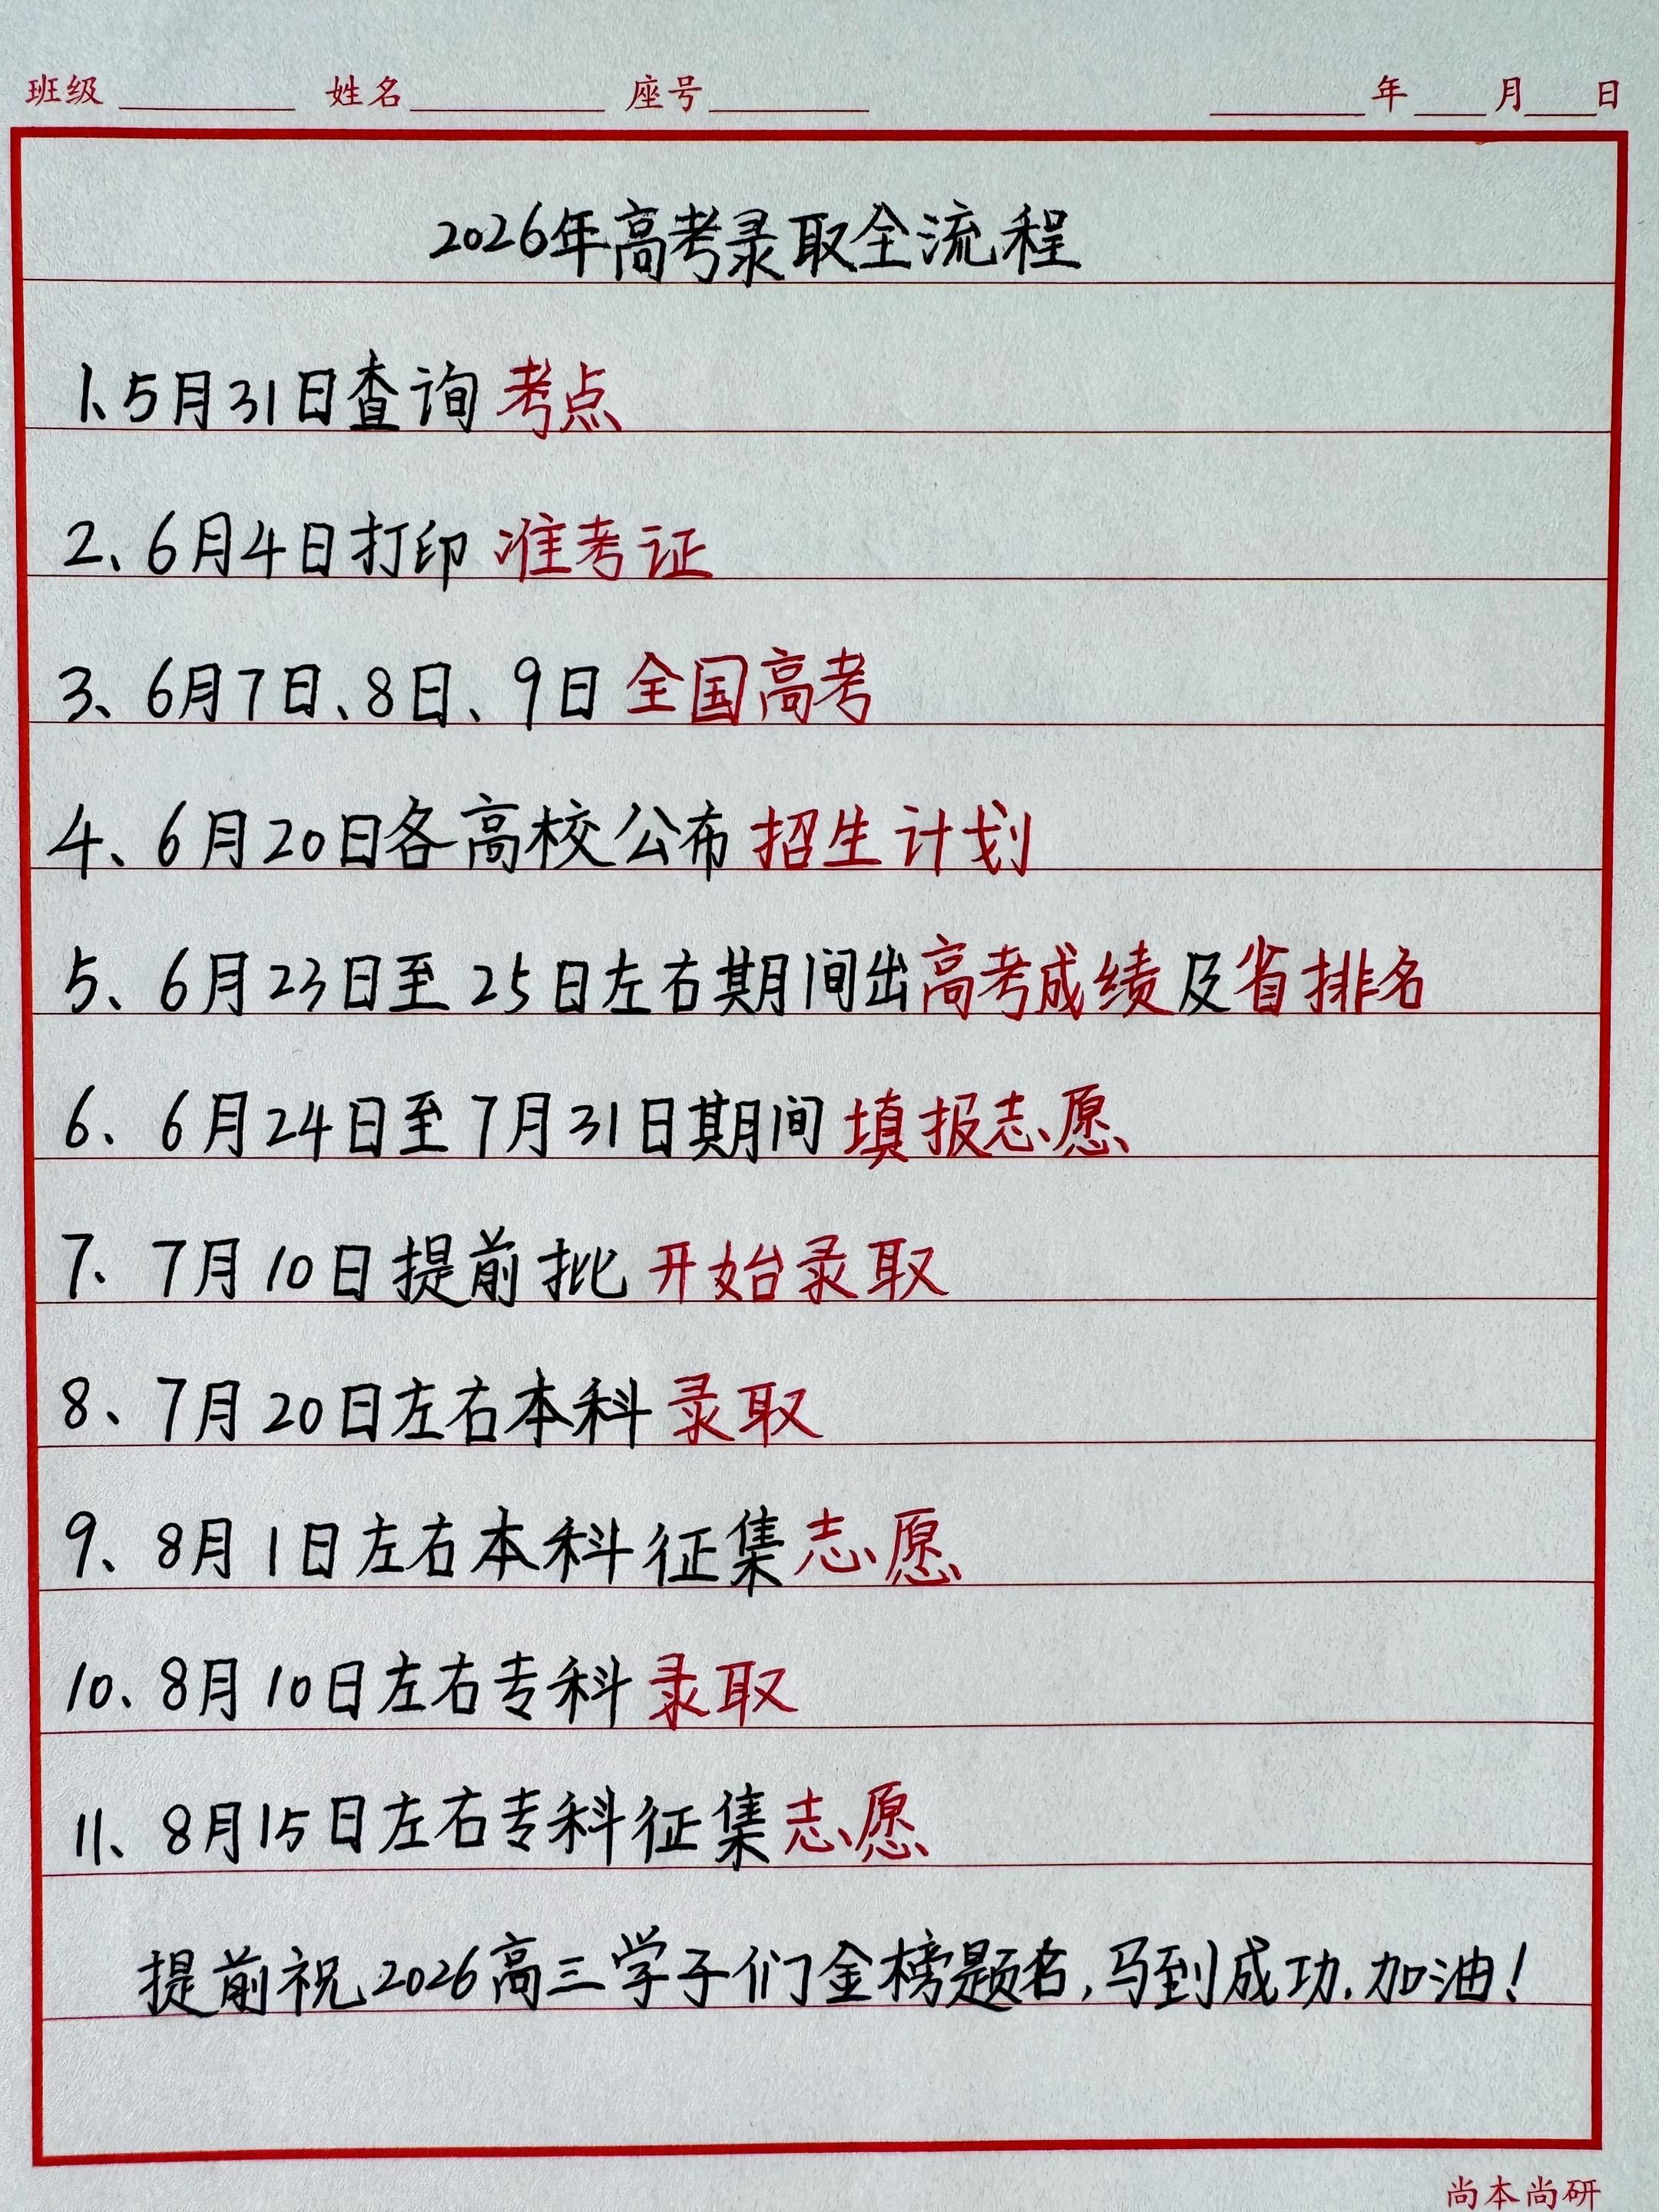 班级 姓名 座号 年 月 日
2026年高考录取全流程
1、5月31日查询考点
2、6月4日打印准考证
3、6月7日、8日、9日全国高考
4、6月20日各高校公布招生计划
5、6月23日至25日左右期间出高考成绩及省排名
6、6月24日至7月31日期间填报志愿
7、7月10日提前批开始录取
8、7月20日左右本科录取
9、8月1日左右本科征集志愿
10、8月10日左右专科录取
11、8月15日左右专科征集志愿
提前祝2026高三学子们金榜题名,马到成功.加油!
尚本尚研